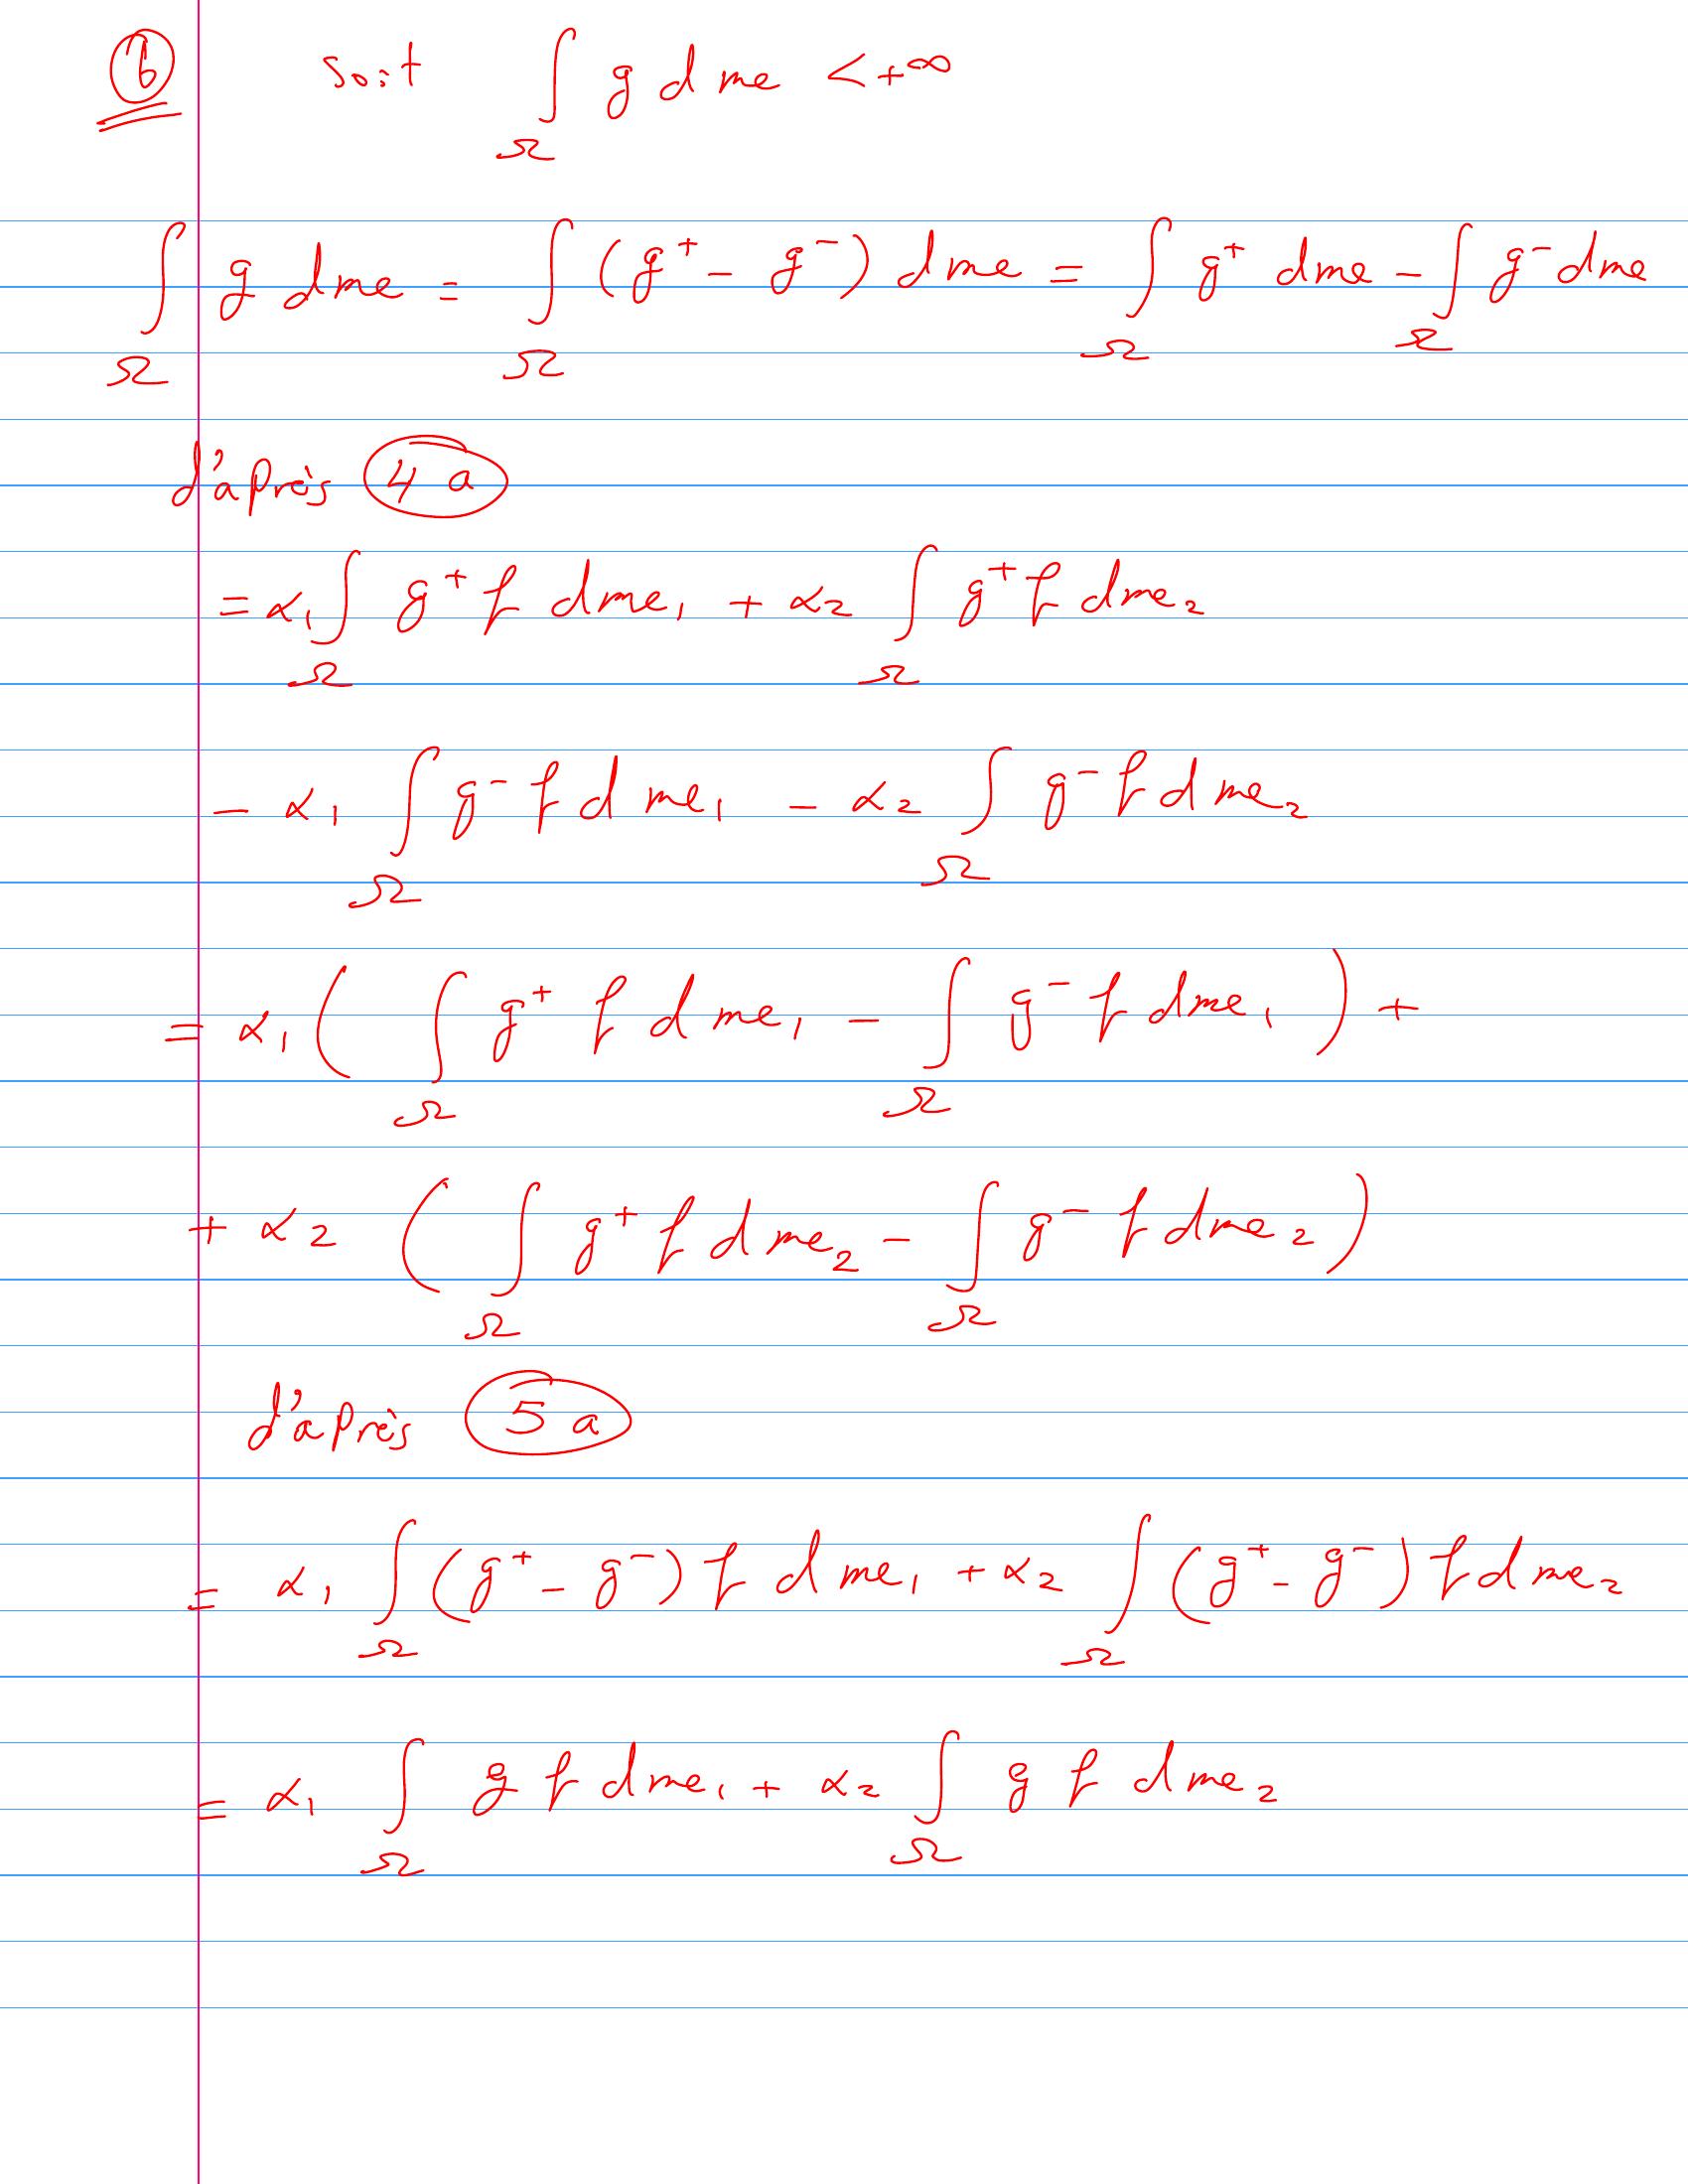 6 soit ∫_Ω g dme < +∞
∫_Ω g dme = ∫_Ω (g⁺ - g⁻) dme = ∫_Ω g⁺ dme - ∫_Ω g⁻ dme
d'après 4 a
= α₁ ∫_Ω g⁺ f dme₁ + α₂ ∫_Ω g⁺ f dme₂
- α₁ ∫_Ω g⁻ f dme₁ - α₂ ∫_Ω g⁻ f dme₂
= α₁ ( ∫_Ω g⁺ f dme₁ - ∫_Ω g⁻ f dme₁ ) +
+ α₂ ( ∫_Ω g⁺ f dme₂ - ∫_Ω g⁻ f dme₂ )
d'après 5 a
= α₁ ∫_Ω (g⁺ - g⁻) f dme₁ + α₂ ∫_Ω (g⁺ - g⁻) f dme₂
= α₁ ∫_Ω g f dme₁ + α₂ ∫_Ω g f dme₂